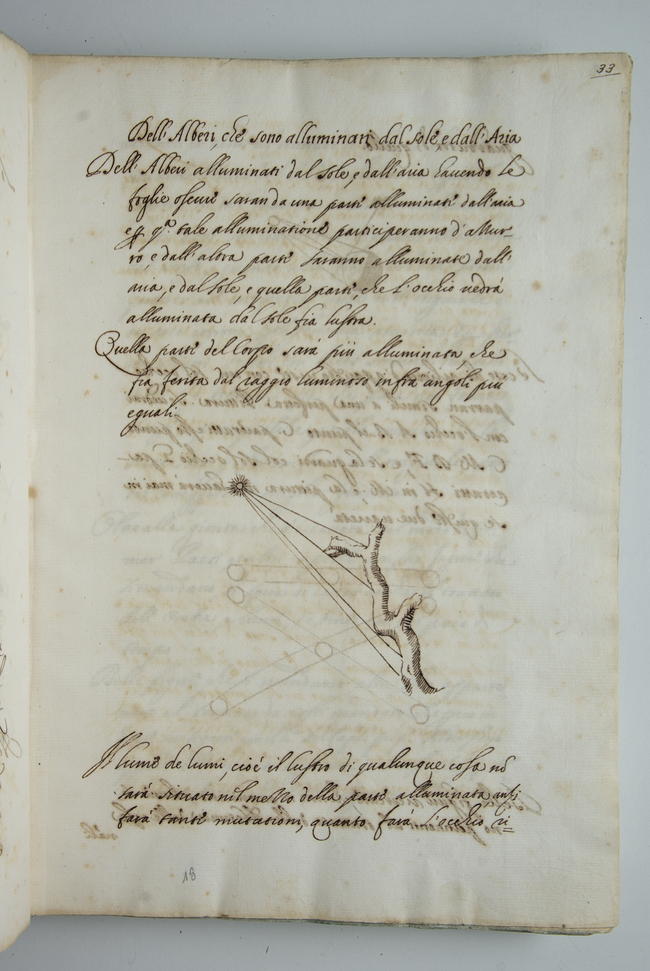 33
Dell' Alberi, che sono alluminati dal sole, e dall' Aria
Dell' Alberi alluminati dal sole, e dall'aria havendo le
foglie oscure saranda una parte alluminate dall'aria
e p q.º tale alluminatione participeranno d'azur-
ro, e dall'altra parte saranno alluminate dall'
aria, e dal sole, e quella parte, che l'occhio vedrà
alluminata dal sole fia lustra.
Quella parte del Corpo sarà più alluminata, che
fia ferita dal raggio luminoso infra angoli più
eguali
Il lume de lumi, cioè il lustro di qualunque cosa nō
sarà situato nel mezzo della parte alluminata, ansi
farà tante mutationi, quanto farà l'occhio ri=
18